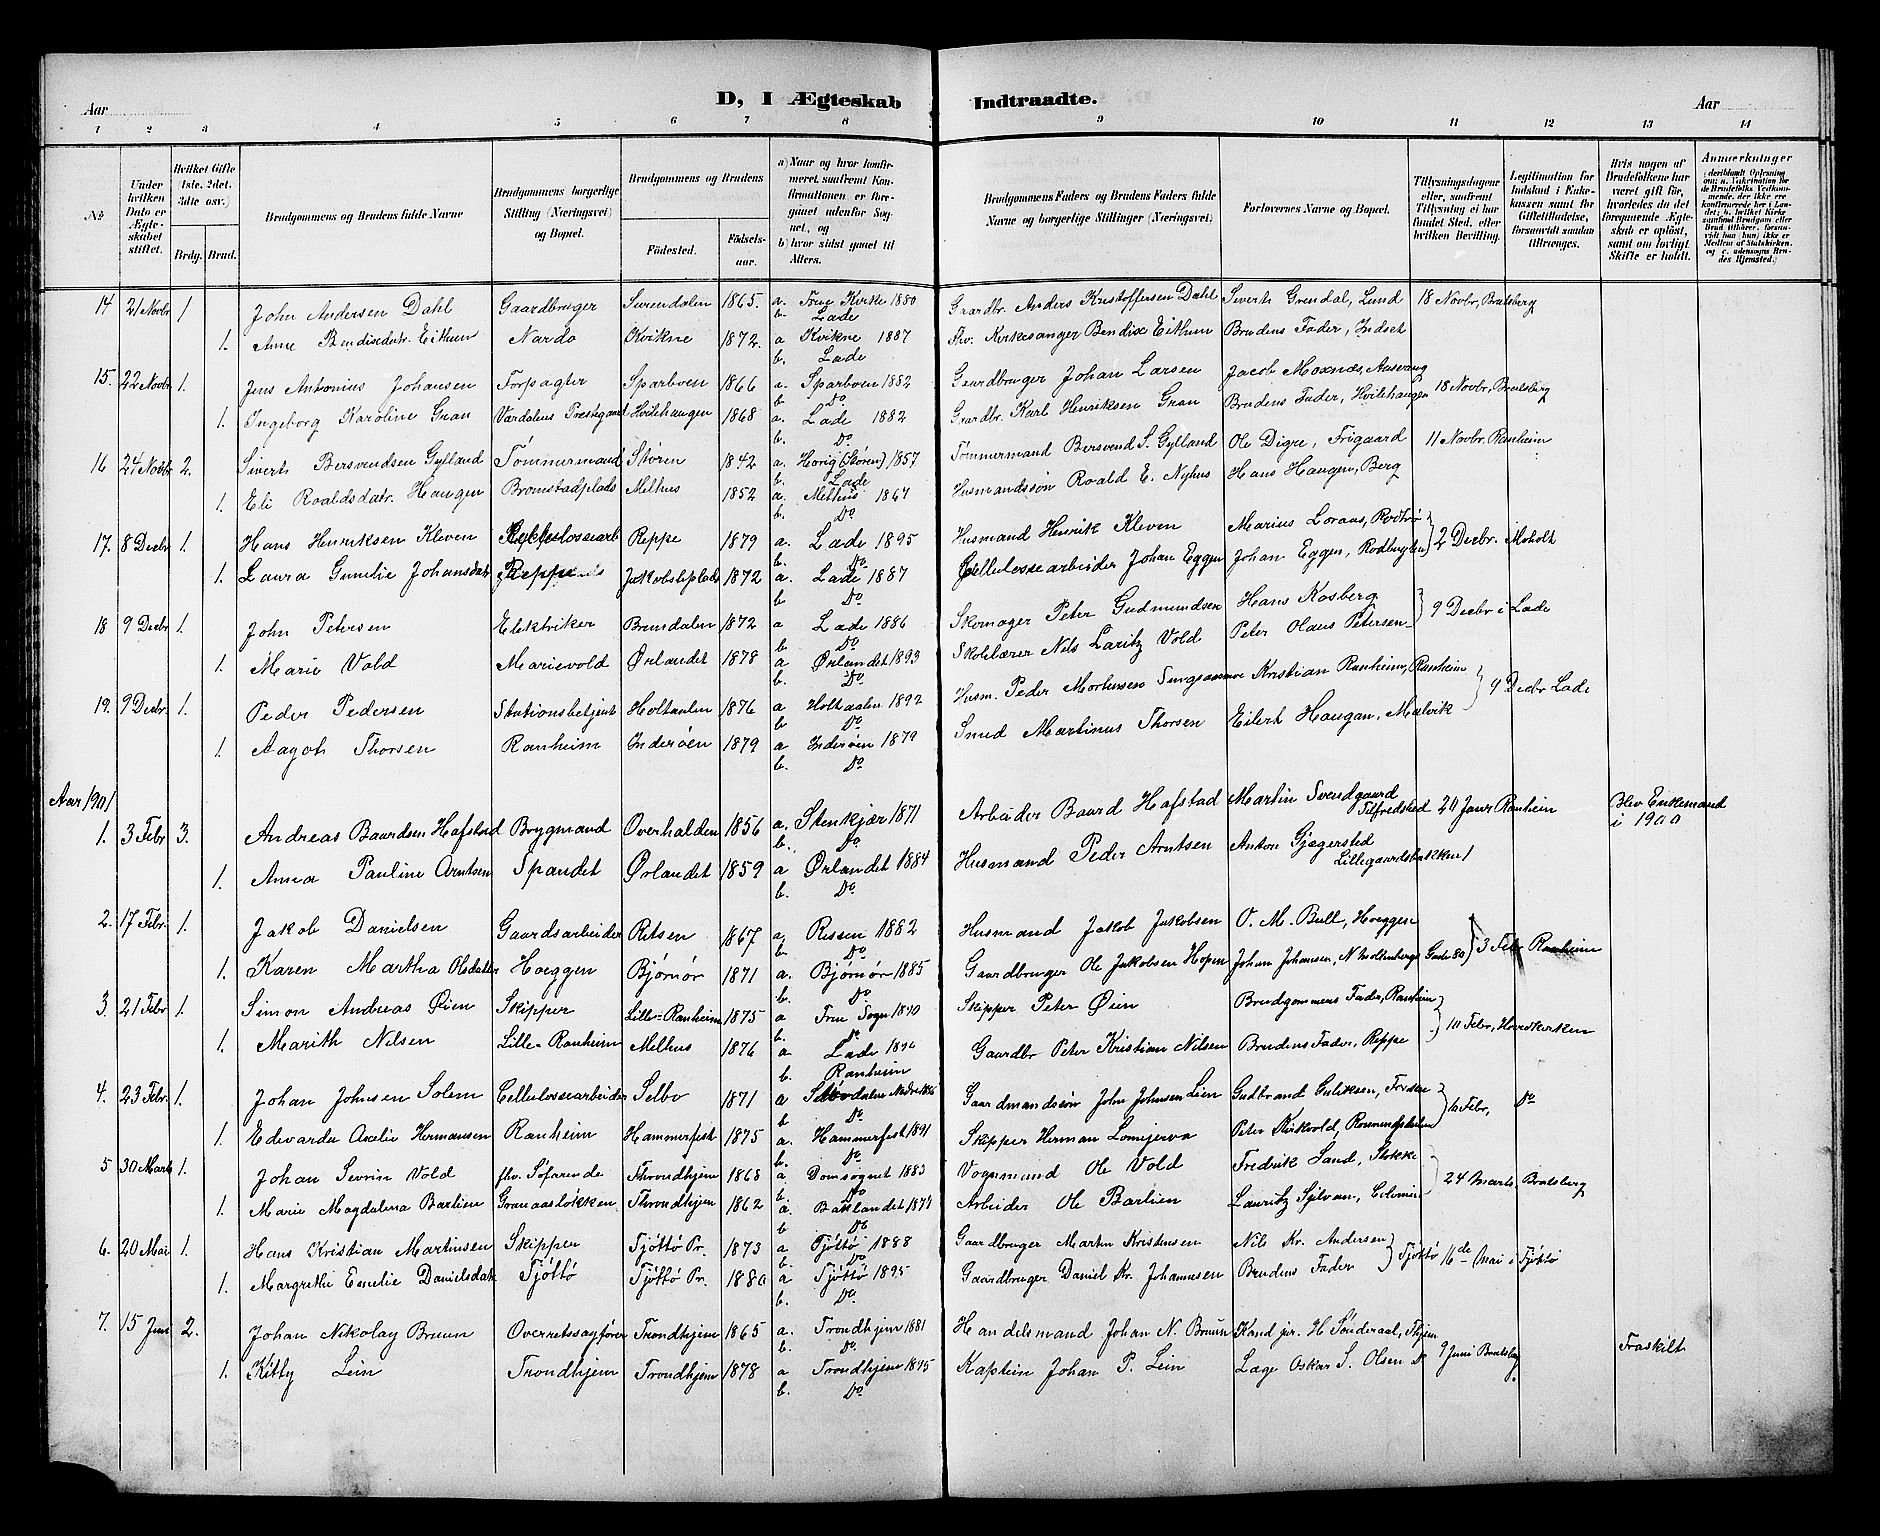 D, I Ægteskab Indtraadte.
Aar
Aar
1 2 3 4 5 6 7 8 9 10 11 12 13 14
No
Under hvilken Dato er Ægteskabet stiftet.
Hvilket Gifte 1ste, 2det, 3die osv.)
Brdg. Brud.
Brudgommens og Brudens fulde Navne
Brudgommens borgerlige Stilling (Næringsvei) og Bopæl.
Brudgommens og Brudens
Fødested.
Fødsels-aar.
a) Naar og hvor konfirmeret, saafremt Konfirmationen er foregaaet udenfor Sognet, og
b) hvor sidst gaaet til Alters.
Brudgommens Faders og Brudens Faders fulde Navne og borgerlige Stillinger (Næringsvei)
Forlovernes Navne og Bopæl.
Tillysningsdagene eller, saafremt Tillysning ei har fundet Sted, efter hvilken Bevilling.
Legitimation for Indskud i Enkekassen samt for Giftetilladelse, forsaavidt saadan tiltrænges.
Hvis nogen af Brudefolkene har været gift før, hvorledes da det foregaaende Ægteskab er opløst, samt om lovligt Skifte er holdt.
Anmærkninger
14 21 Novbr 1 John Andersen Dahl Gaardbruger Surendalen 1865. a. Frue Kirke 1880 Gaardbr. Anders Kristoffersen Dahl Sivert Grendal, Lund 18 Novbr, Bratsberg
b. Lade
1. Anne Bendixdatr. Eithun Nardo Kvikne 1872. a Kvikne 1887 Fhv. Kirkesanger Bendix Eithun Brudens Fader, Indset
b. Lade
15. 22 Novbr 1. Jens Antonius Johansen Forpagter Sparboen 1866 a. Sparboen 1882 Gaardbruger Johan Larsen Jacob Moxnæs, 18 Novbr, Bratsberg
b. Do
1. Ingeborg Karoline Gran Værdalens Prestegaard Hvilehaugen 1868 a. Lade 1882 Gaardbr. Karl Henriksen Gran Brudens Fader, Hvilehaugen
b. Do
16 24 Novbr 2. Sivert Bersvendsen Gylland Tömmermand Støren 1842 a. Horig (Støren) 1857 Tømmermand Bersvend S. Gylland Ole Digre, Frigaard 11 Novbr, Ranheim
b. Lade
1. Eli Roaldsdatr. Haugen Bromstadplads Melhus 1852 a. Melhus 1867 Husmandssøn Roald E. Nyhus Hans Haugen, Berg
b. Do
17. 8 Decbr 1. Hans Henriksen Kleven Reppe 1879 a. Lade 1895 Husmand Henrik Kleven Marius Loraas, 2 Decbr. Moholt
b. Do
1. Laura Gunelie Johansdatr Reppe Jakobsliplads 1872 a. Lade 1887 Cellulossearbeider Johan Eggen Johan Eggen,
b Do
18 9 Decbr 1. John Petersen Elektriker Brundalen 1872 a Lade 1886 Skomager Peter Gudmundsen Hans Kosberg 9 Decbr i Lade
b. Do
1. Marie Vold Marievold Ørlandet 1878 a Ørlandet 1893 Skolelærer Nils Laritz Vold Peter Olaus Petersen
b. Do
19. 9 Decbr 1. Peder Pedersen Stationsbetjent Holtaalen 1876 a Holtaalen 1892 Husm. Peder Mortensen Kristian Ranheim, Ranheim 9 Decbr Lade
b Do
1. Aagoth Thorsen Ranheim Inderøen 1879 a Inderøen 1879 Smed Martinus Thorsen Eilert Haugan, Malvik
b. Do
Aar 1901
1. 3 Febr 3. Andreas Baardsen Hafstad Brygmand Overhalden 1856 a. Stenkjær 1871 Arbeider Baard Hafstad Martin Svendgaard Tilfredshed 20 Janr Ranheim Blev Enkemand i 1900
b. Do
1. Anna Pauline Arntsen Spandet Ørlandet 1859 a Ørlandet 1884 Husmand Peder Arntsen Anton Gjægersted Lillegaardsbakken 1
b. Do
2. 17 Febr. 1 Jakob Danielsen Gaardsarbeider Retsen 1867 a. Rissen 1882 Husmand Jakob Jakobsen O. M. Bull, Hoeggen 3 Febr Ranheim
b. Do
1. Karen Martha Olsdatter Hoeggen Bjørnør 1871 a. Bjørnør 1885 Gaardbruger Ole Jakobsen Hopen Johan Johansen, N Mollenbergs Gade 80
b. Do
3. 21 Febr 1. Simon Andreas Øien Skipper Lille-Ranheim 1875 a Frue Sogn 1890 Skipper Peter Øien Brudgommens Fader, Ranheim 10 Febr, Hovedkirken
b. Do
1. Marith Nilsen Lille-Ranheim Melhus 1876 a. Lade 1890 Gaardbr Peter Kristian Nilsen Brudens Fader, Reppe
b. Ranheim
4. 23 Febr. 1. Johan Johnsen Solem Cellulossearbeider Selbo 1871 a Gaardmandssøn John Johnsen Lien Gudbrand Guliksen, 10 Febr, Do
b. Do
1. Edvarda Oxelie Hermansen Ranheim Hammerfest 1875 a. Hammerfest 1891 Skipper Herman Lomijerva Peter Kirkvold,
b. Do
5 30 Marts 1. Johan Sevrin Vold fhv. Söfarende Throndhjem 1868 a Domsognet 1883 Vognmand Ole Vold Fredrik Sand, Stokke 24 Marts, Bratsberg
b. Do
1. Marie Magdalena Bartien Granaasløkken Throndhjem 1862 a. Baklandet 1877 Arbeider Ole Bartien Lauritz Sylvan,
b Do
6. 20 Mai 1. Hans Kristian Martinsen Skipper Tjöttö Pr. 1873 a Tjöttö 1888 Gaardbruger Martin Kristensen Nils Kr. Andersen Tjöttö 16de Mai i Tjöttö
b. Do
1. Margrethe Emelie Danielsdatr Tjöttö Tjöttö Pr. 1880 a Tjöttö 1895 Gaardbruger Daniel Kr. Johannesen Brudens Fader
b. Do
7. 15 Juni 2. Johan Nikolay Bruun Overretssagfører Trondhjem 1865 a. Trondhjem 1881 Handelsmand Johan N. Bruun Kand jur. H Sönderaal, Thjem 9 Juni Bratsberg Fraskilt
b. Do
1. Kitty Lein Trondhjem Trondhjem 1878 a Trondhjem 1895 Kaptein Johan P. Lein Læge Oskar S. Olsen
b. Do